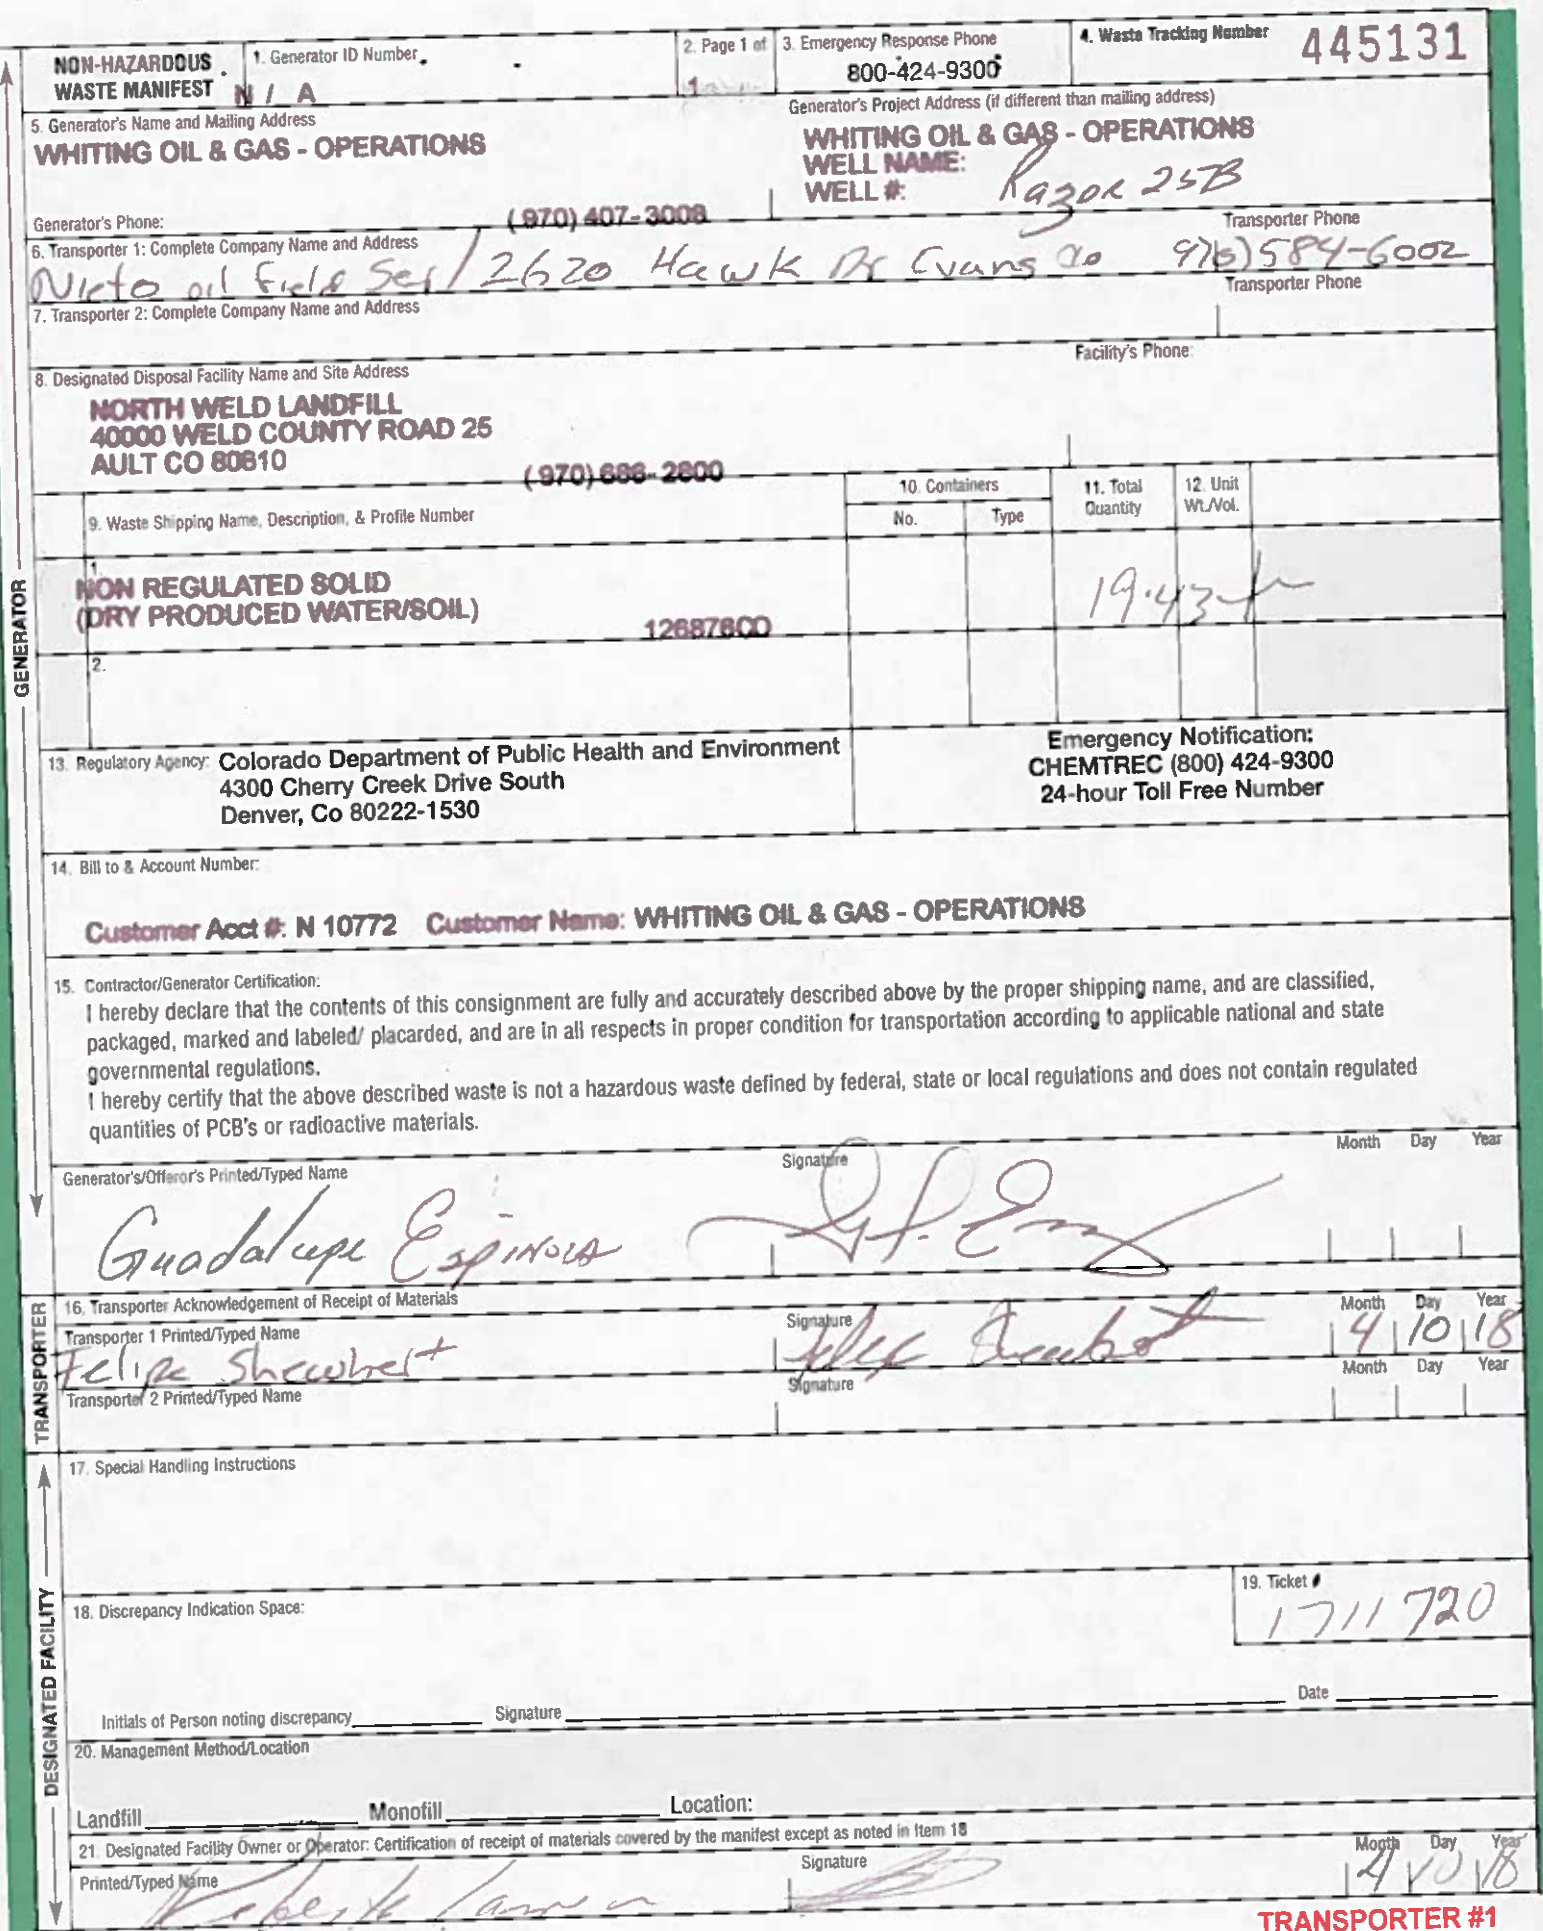 NON-HAZARDOUS WASTE MANIFEST
1. Generator ID Number
N / A
2. Page 1 of
1
3. Emergency Response Phone
800-424-9300
4. Waste Tracking Number
445131
5. Generator's Name and Mailing Address
WHITING OIL & GAS - OPERATIONS
Generator's Project Address (if different than mailing address)
WHITING OIL & GAS - OPERATIONS
WELL NAME:
WELL #: Razor 25B
Generator's Phone: (970) 407-3008
6. Transporter 1: Complete Company Name and Address
Transporter Phone
Nieto oil Field Ser/ 2620 Hawk Dr Evans Co 970)584-6002
7. Transporter 2: Complete Company Name and Address
Transporter Phone
8. Designated Disposal Facility Name and Site Address
Facility's Phone:
NORTH WELD LANDFILL
40000 WELD COUNTY ROAD 25
AULT CO 80610
(970) 686-2800
9. Waste Shipping Name, Description, & Profile Number
10. Containers
No.
Type
11. Total Quantity
12. Unit Wt./Vol.
1.
NON REGULATED SOLID
(DRY PRODUCED WATER/SOIL)
126876CO
19.43
2.
13. Regulatory Agency: Colorado Department of Public Health and Environment
4300 Cherry Creek Drive South
Denver, Co 80222-1530
Emergency Notification:
CHEMTREC (800) 424-9300
24-hour Toll Free Number
14. Bill to & Account Number:
Customer Acct #: N 10772 Customer Name: WHITING OIL & GAS - OPERATIONS
15. Contractor/Generator Certification:
I hereby declare that the contents of this consignment are fully and accurately described above by the proper shipping name, and are classified,
packaged, marked and labeled/ placarded, and are in all respects in proper condition for transportation according to applicable national and state
governmental regulations.
I hereby certify that the above described waste is not a hazardous waste defined by federal, state or local regulations and does not contain regulated
quantities of PCB's or radioactive materials.
Generator's/Offeror's Printed/Typed Name
Signature
Month Day Year
Guadalupe Espinola
16. Transporter Acknowledgement of Receipt of Materials
Transporter 1 Printed/Typed Name
Signature
Month Day Year
Felipe Shewbert
4 10 18
Transporter 2 Printed/Typed Name
Signature
Month Day Year
17. Special Handling Instructions
18. Discrepancy Indication Space:
19. Ticket #
1711720
Initials of Person noting discrepancy
Signature
Date
20. Management Method/Location
Landfill
Monofill
Location:
21. Designated Facility Owner or Operator: Certification of receipt of materials covered by the manifest except as noted in Item 18
Printed/Typed Name
Signature
Month Day Year
4 10 18
TRANSPORTER #1
GENERATOR
TRANSPORTER
DESIGNATED FACILITY